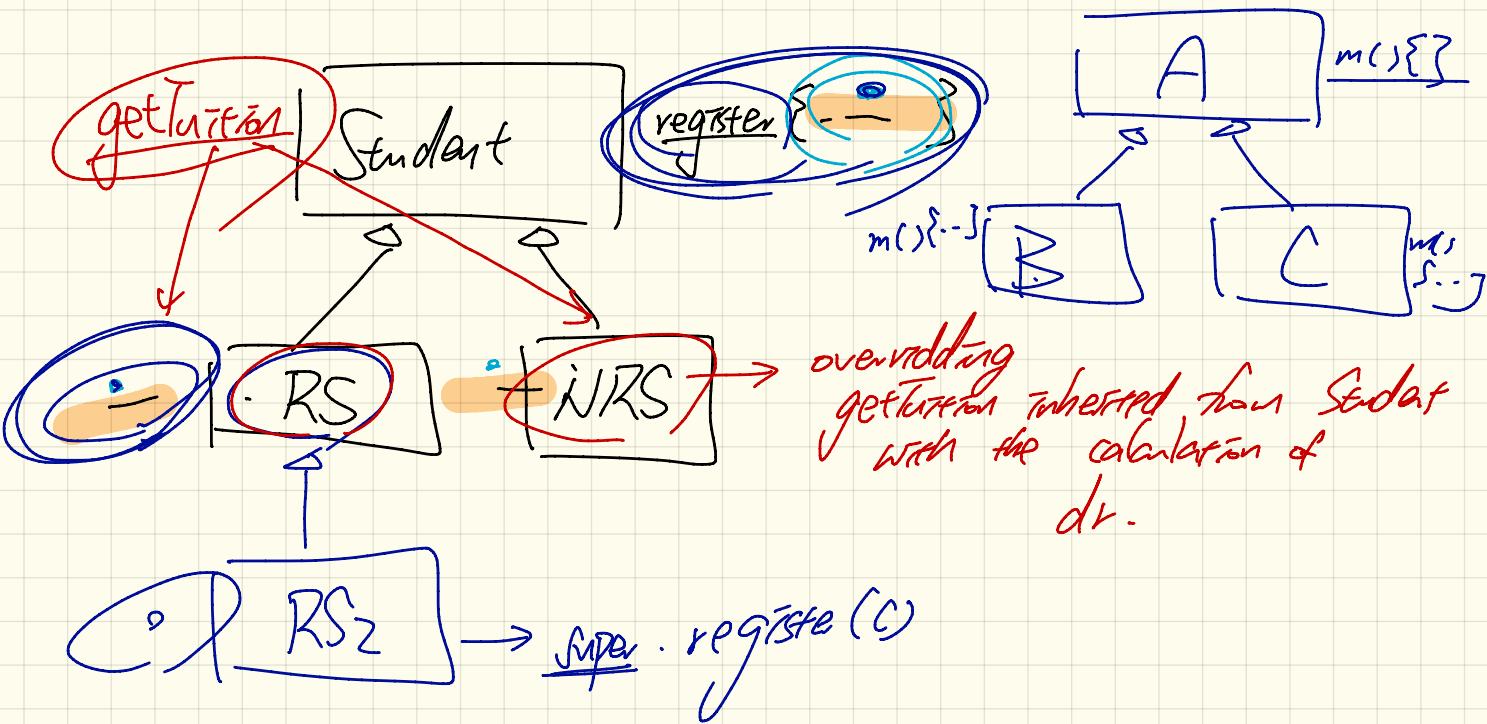 getTuition
Student
register { }
A
m(){}
m(){...}
B
C
m()
{...}
RS
NRS
overridding
getTuition inherited from Student
with the calculation of
dr.
RS2
super.registe(c)